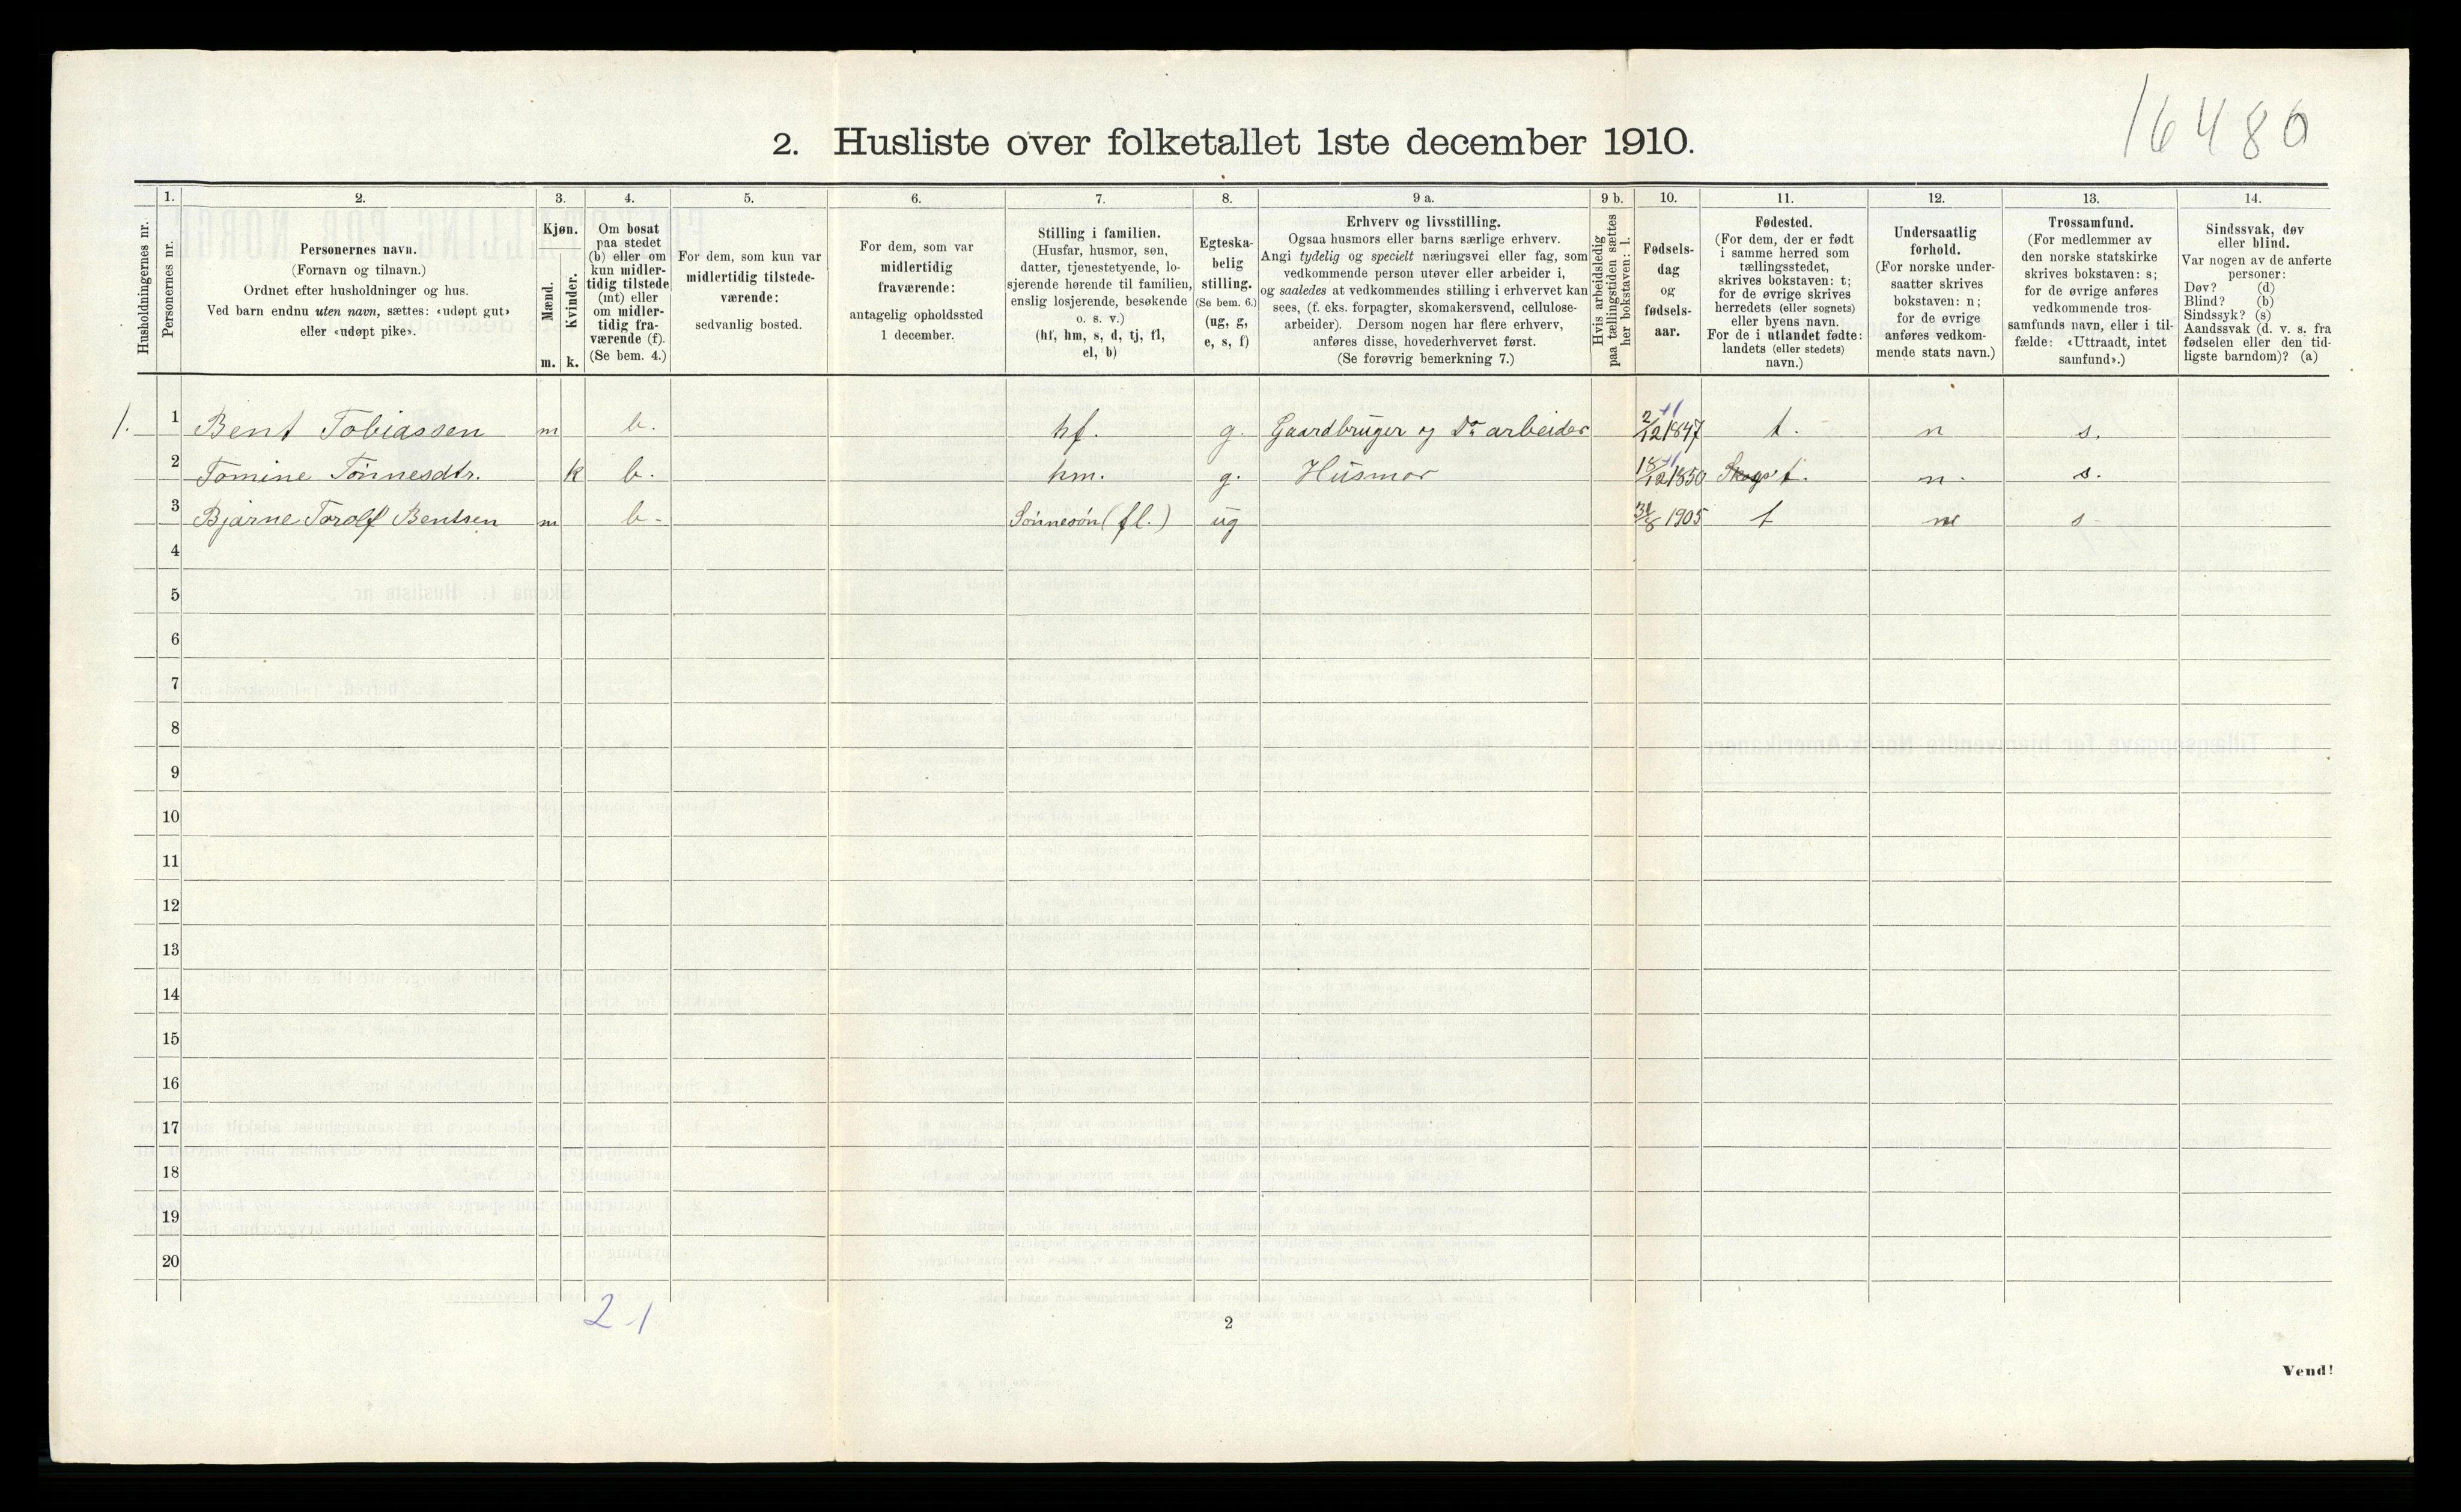 16480
2. Husliste over folketallet 1ste december 1910.
Husholdningernes nr.
1.
Personernes nr.
2.
Personernes navn.
(Fornavn og tilnavn.)
Ordnet efter husholdninger og hus.
Ved barn endnu uten navn, sættes: «udøpt gut»
eller «udøpt pike».
3.
Kjøn.
Mænd.
m.
Kvinder.
k.
4.
Om bosat
paa stedet
(b) eller om
kun midler-
tidig tilstede
(mt) eller
om midler-
tidig fra-
værende (f).
(Se bem. 4.)
5.
For dem, som kun var
midlertidig tilstede-
værende:
sedvanlig bosted.
6.
For dem, som var
midlertidig
fraværende:
antagelig opholdssted
1 december.
7.
Stilling i familien.
(Husfar, husmor, søn,
datter, tjenestetyende, lo-
sjerende hørende til familien,
enslig losjerende, besøkende
o. s. v.)
(hf, hm, s, d, tj, fl,
el, b)
8.
Egteska-
belig
stilling.
(Se bem. 6.)
(ug, g,
e, s, f)
9 a.
Erhverv og livsstilling.
Ogsaa husmors eller barns særlige erhverv.
Angi tydelig og specielt næringsvei eller fag, som
vedkommende person utøver eller arbeider i,
og saaledes at vedkommendes stilling i erhvervet kan
sees, (f. eks. forpagter, skomakersvend, cellulose-
arbeider). Dersom nogen har flere erhverv,
anføres disse, hovederhvervet først.
(Se forøvrig bemerkning 7.)
9 b.
Hvis arbeidsledig
paa tællingstiden sættes
her bokstaven: l.
10.
Fødsels-
dag
og
fødsels-
aar.
11.
Fødested.
(For dem, der er født
i samme herred som
tællingsstedet,
skrives bokstaven: t;
for de øvrige skrives
herredets (eller sognets)
eller byens navn.
For de i utlandet fødte:
landets (eller stedets)
navn.)
12.
Undersaatlig
forhold.
(For norske under-
saatter skrives
bokstaven: n;
for de øvrige
anføres vedkom-
mende stats navn.)
13.
Trossamfund.
(For medlemmer av
den norske statskirke
skrives bokstaven: s;
for de øvrige anføres
vedkommende tros-
samfunds navn, eller i til-
fælde: «Uttraadt, intet
samfund».)
14.
Sindssvak, døv
eller blind.
Var nogen av de anførte
personer:
Døv? (d)
Blind? (b)
Sindssyk? (s)
Aandssvak (d. v. s. fra
fødselen eller den tid-
ligste barndom)? (a)
1. 1 Bent Tobiassen m b. hf. g. Gaardbruger og Do arbeider 2/12 1847 t. n s.
2 Tomine Tønnesdtr. k b. hm. g. Husmor 18/12 1850 t. n. s.
3 Bjarne Torolf Bentsen m b- Sønnesøn (fl.) ug 31/8 1905 t n s-
4
5
6
7
8
9
10
11
12
13
14
15
16
17
18
19
20
2-1
2
Vend!